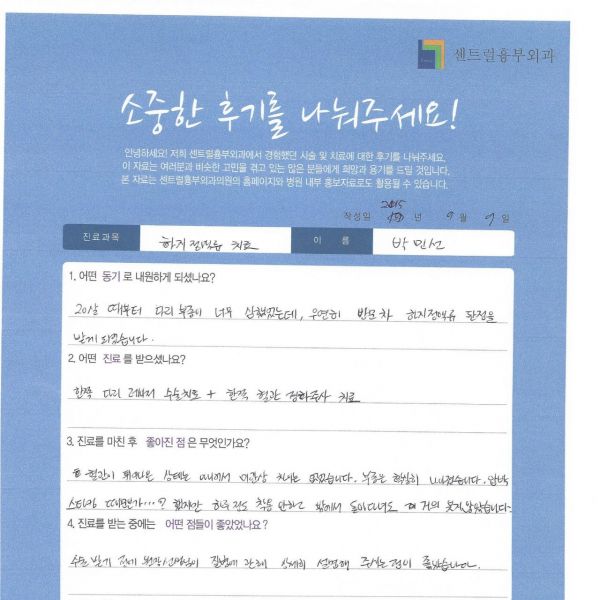 센트럴흉부외과
소중한 후기를 나눠주세요!
안녕하세요! 저희 센트럴흉부외과에서 경험했던 시술 및 치료에 대한 후기를 나눠주세요.
이 자료는 여러분과 비슷한 고민을 겪고 있는 많은 분들에게 희망과 용기를 드릴 것입니다.
본 자료는 센트럴흉부외과의원의 홈페이지와 병원 내부 홍보자료로도 활용될 수 있습니다.
2015
작성일 년 9 월 9 일
진료과목 하지정맥류 치료 이 름 박민선
1. 어떤 동기 로 내원하게 되셨나요?
20살 때부터 다리 부종이 너무 심했었는데, 우연히 받은 차 하지정맥류 판정을
받게 되었습니다.
2. 어떤 진료 를 받으셨나요?
한쪽 다리 레이저 수술치료 + 한쪽 혈관 경화주사 치료
3. 진료를 마친 후 좋아진 점 은 무엇인가요?
혈관이 튀어나온 상태는 아니여서 외관상 차이는 없었습니다. 부종은 확실히 나아졌습니다. 압박
스타킹 때문인가...? 했지만 하루정도 착용 안하고 밖에서 돌아다녀도 거의 붓지 않았습니다.
4. 진료를 받는 중에는 어떤 점들이 좋았었나요 ?
수술 받기 전에 원장선생님이 질병에 관해 상세히 설명해 주시는점이 좋았습니다.